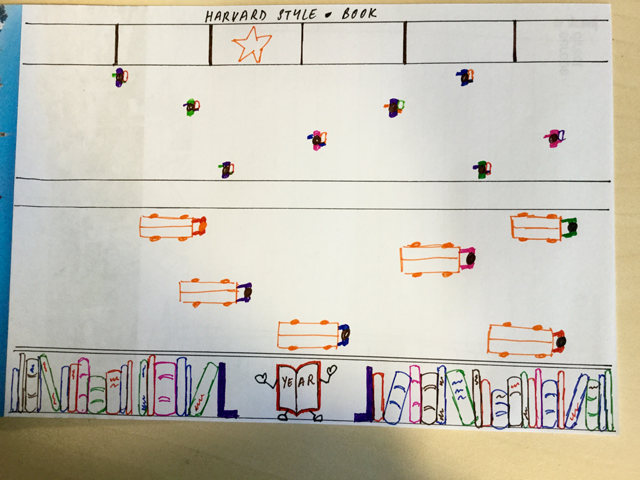 HARVARD STYLE - BOOK
YEAR